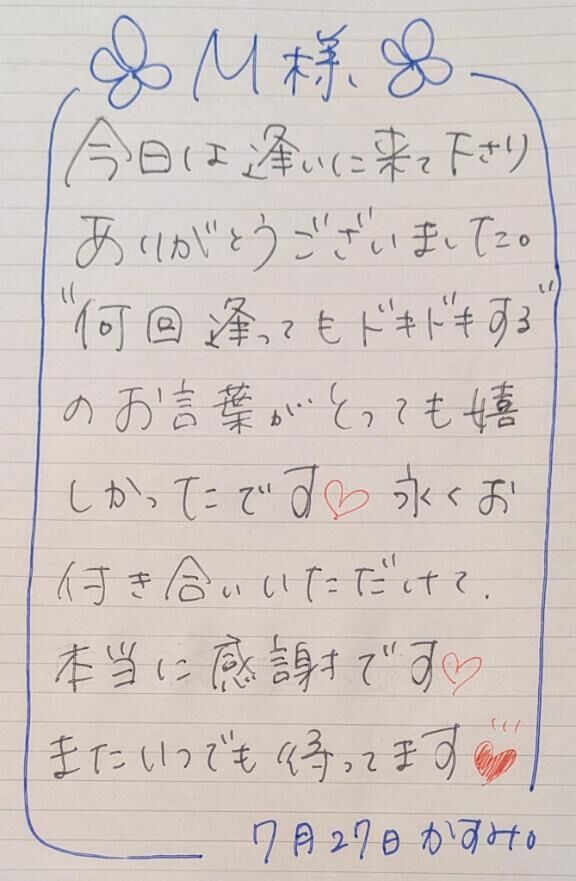 M様
今日は逢いに来て下さり
ありがとうございました。
"何回逢ってもドキドキする"
のお言葉がとっても嬉
しかったです♡ 永くお
付き合いいただけて、
本当に感謝です♡
またいつでも待ってます♥
7月27日かすみ。